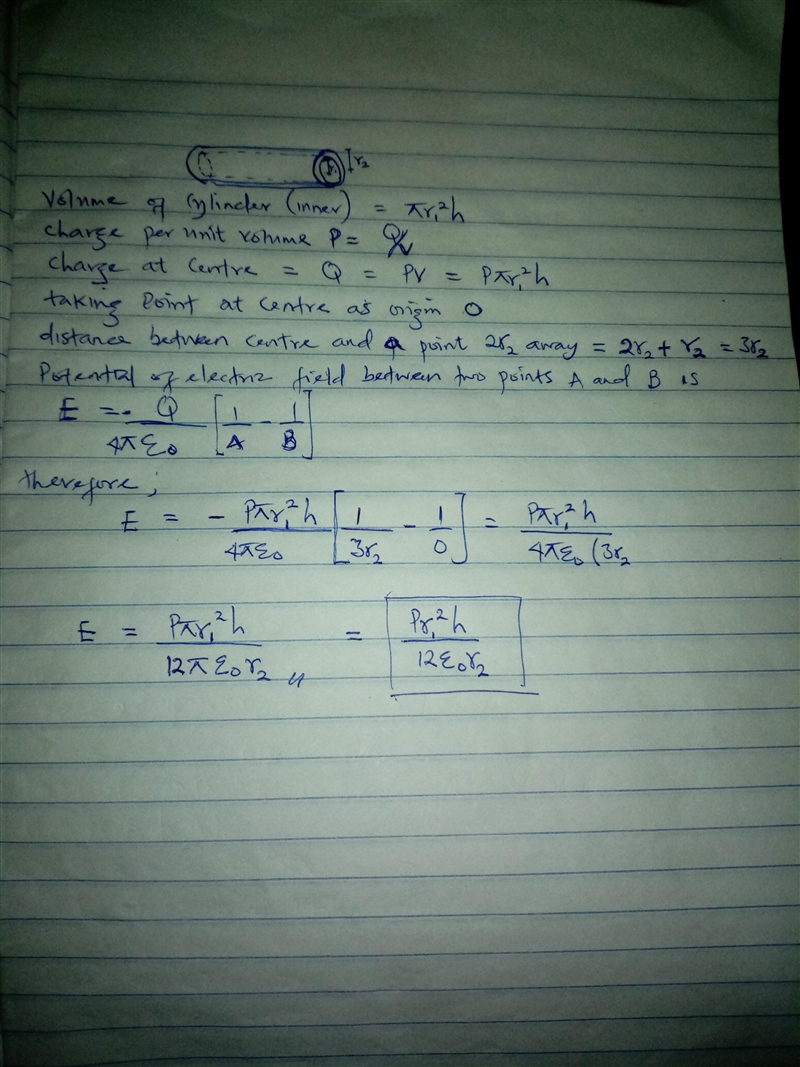 r₁ r₂
Volume of cylinder (inner) = πr₁²h
charge per unit volume P = Q/V
charge at centre = Q = PV = Pπr₁²h
taking Point at centre as origin O
distance between centre and a point 2r₂ away = 2r₂ + r₂ = 3r₂
Potential of electric field between two points A and B is
E = - Q/4πε₀ [1/A - 1/B]
therefore;
E = - Pπr₁²h/4πε₀ [1/3r₂ - 1/0] = Pπr₁²h/4πε₀(3r₂
E = Pπr₁²h/12πε₀r₂ = Pr₁²h/12ε₀r₂